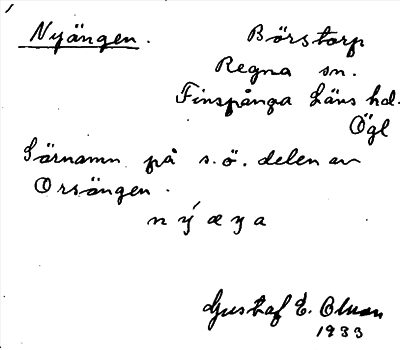 Nyängen. Börstorp
Regna sn.
Finspånga Läns hd.
Ögl
Särnamn på s.ö. delen av
Orsängen.
Gustaf E.
1933